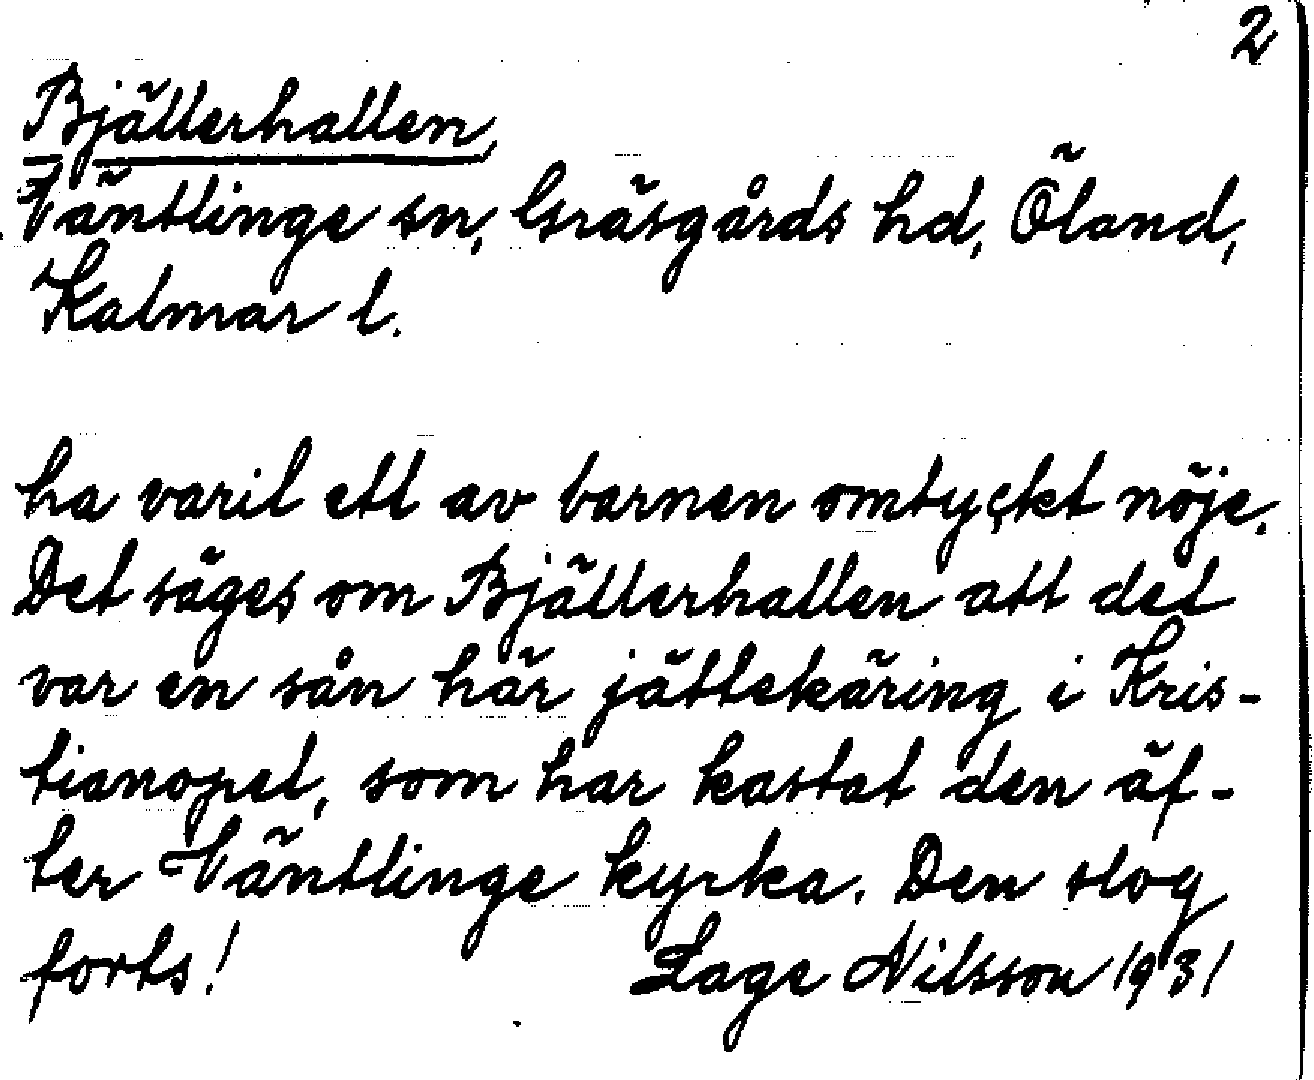 2
Bjällerhallen,
Väntlinge sn, Gräsgårds hd, Öland,
Kalmar l.
ha varit ett av barnen omtyckt nöje.
Det säges om Bjällerhallen att det
var en sån här jättekäring i Kris-
tianopel, som har kastat den äf-
ter Väntlinge kyrka. Den slog
forts! Lage Nilsson 1931